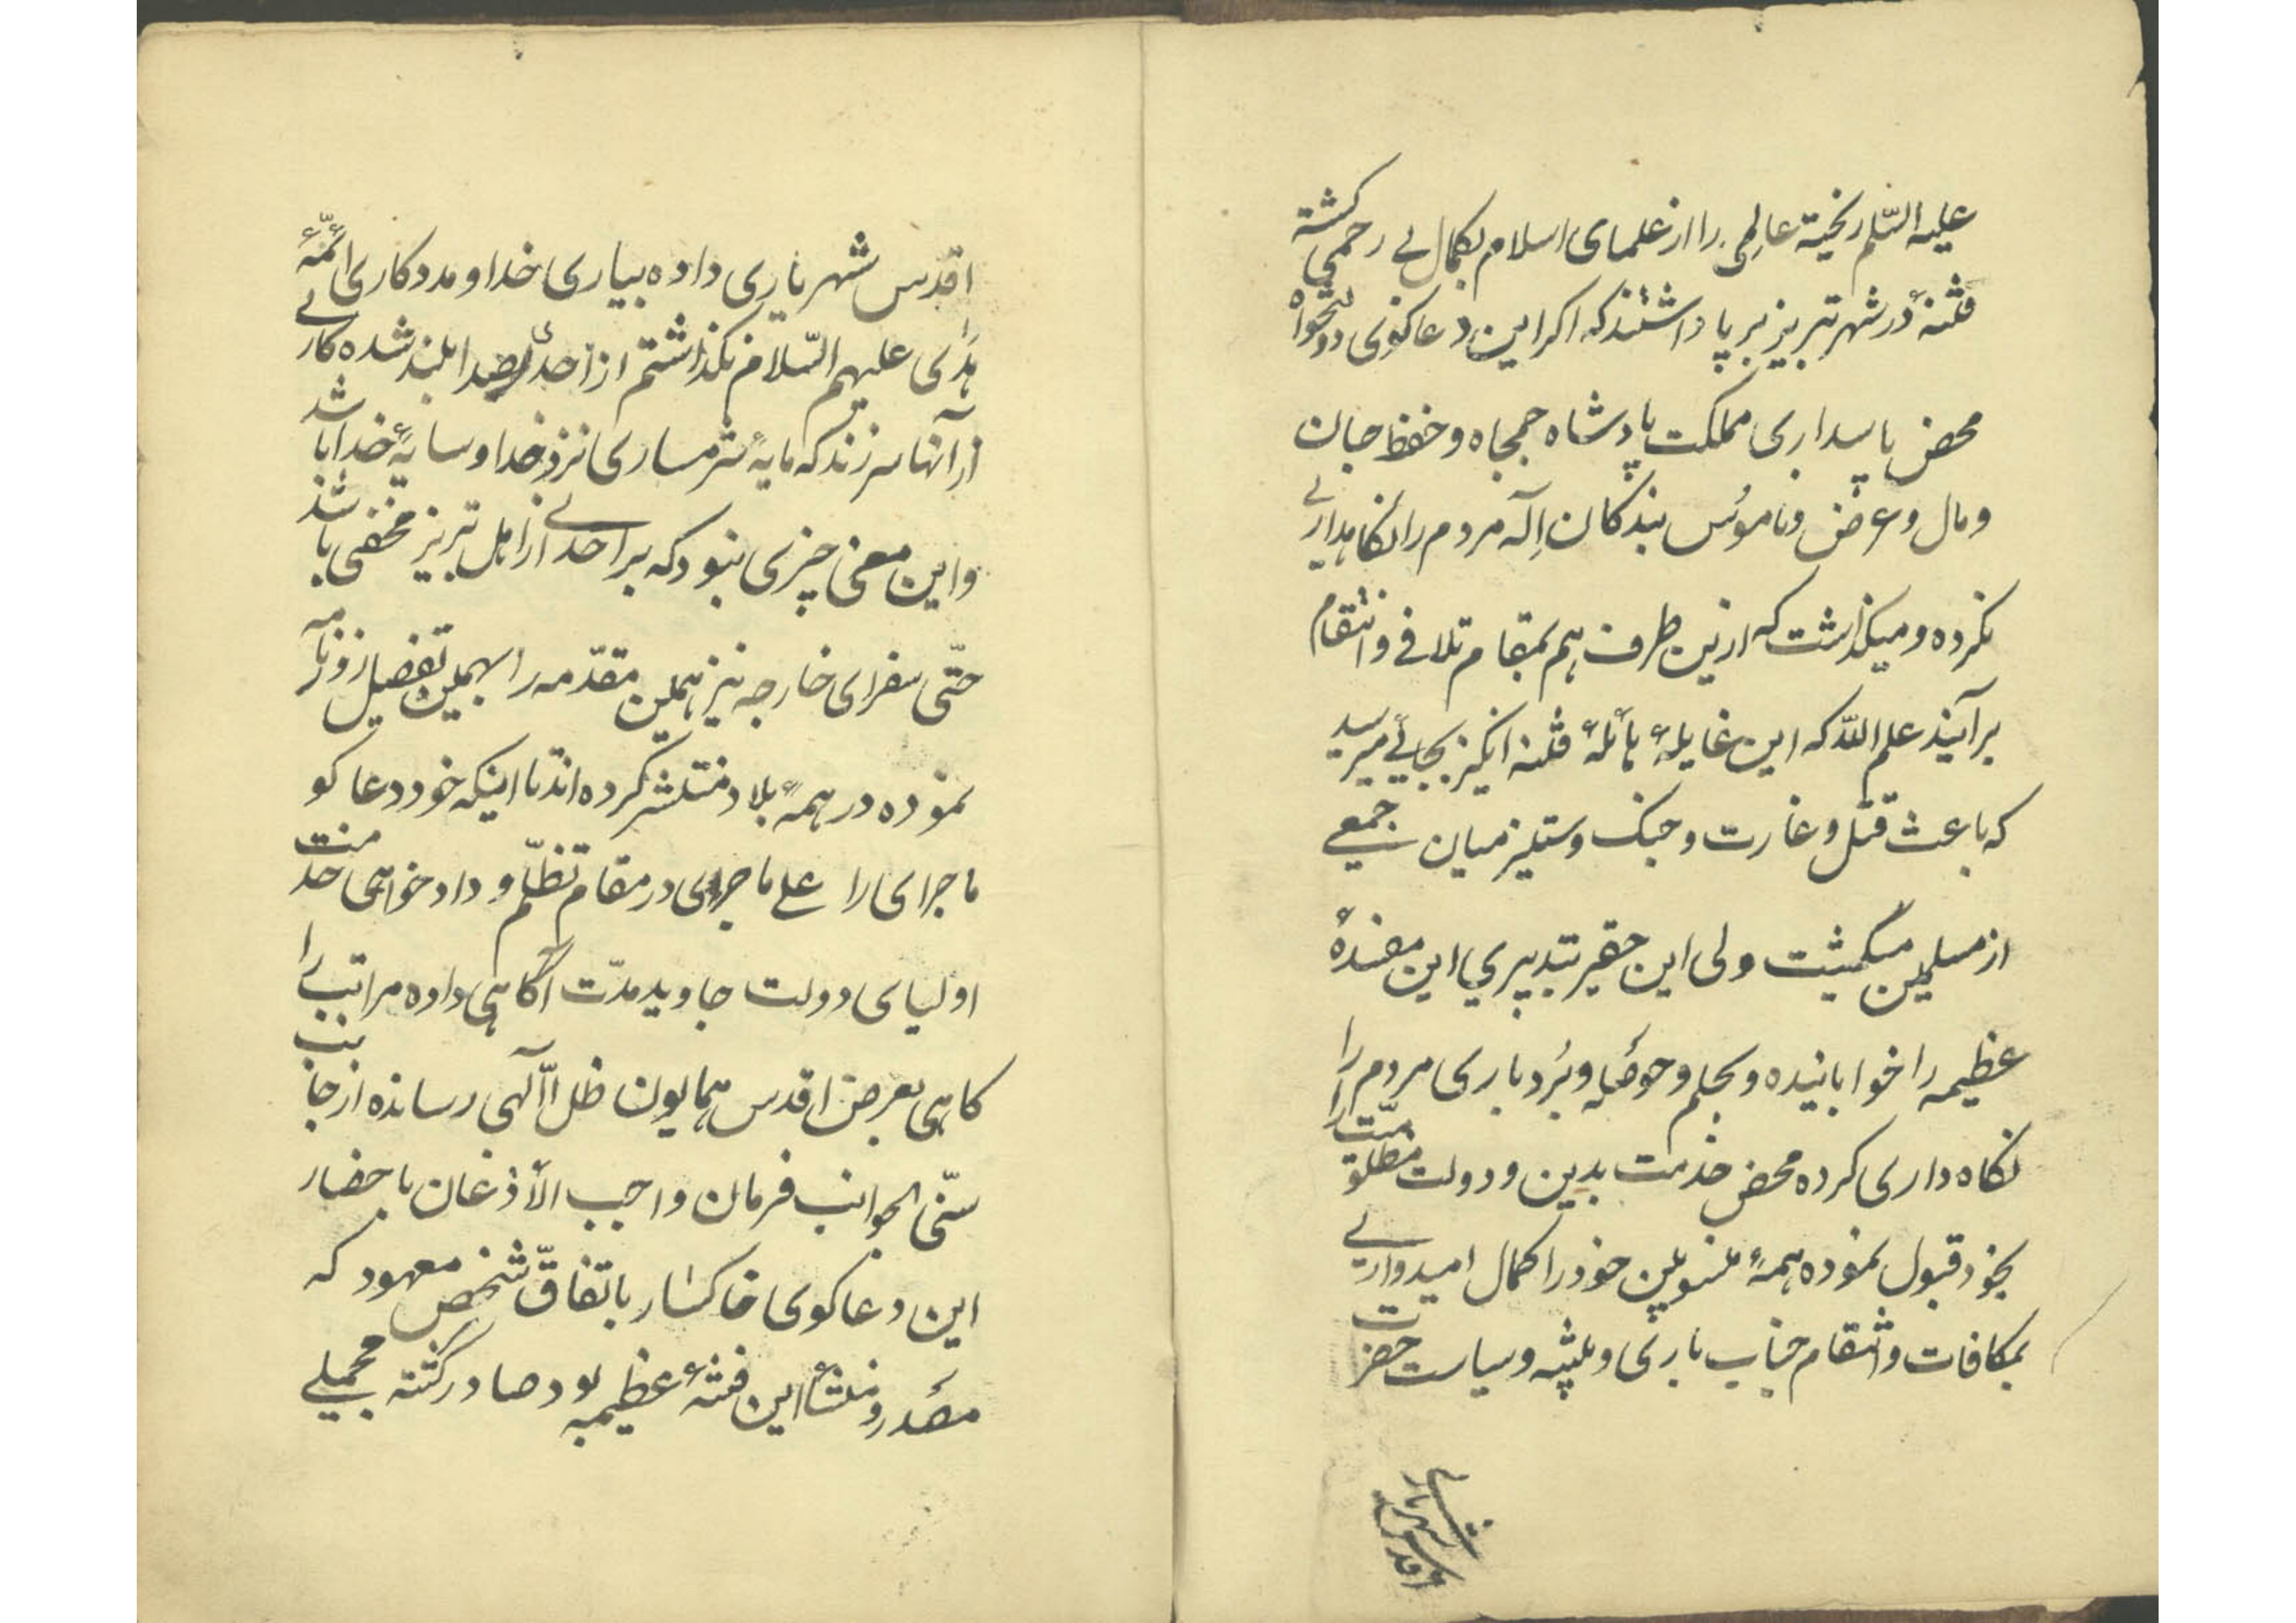 علیه السّلم ریخته عالمی را از علمای اسلام بکمال بے رحمی کشته
فتنهٔ در شهر تبریز بر پا داشتند که اکر این دعاکوی دولتخواه
محض پاسداری مملکت پادشاه جمجاه و حفظ جان
و مال و عرض و ناموس بندکان اِلٓه مردم را نکاهداری
نکرده و میکذاشت که ازین طرف هم بمقام تلافی و انتقام
برآیند علم اللّه که این غایلهٔ هائلهٔ فتنه انکیز بجائے میرسید
که باعث قتل و غارت و جنک و ستیز میان جمعی
از مسلمین میکشت ولی این حقیر بتدبیری این مفسدهٔ
عظیمه را خوابانیده و بحلم و حوصله و بُردباری مردم را
نکاه داری کرده محض خدمت بدین و دولت مظلومیّت را
بخود قبول نموده همهٔ منسوبین خود را کمال امیدواری
بمکافات و انتقام جناب باری و تنبیه و سیاست حضرت
اقدس شهریاری
اقدس شهریاری داده بیاری خدا و مددکاری ائمّهٔ
هدای علیهم السّلام نکذاشتم از احدی صدا بلند شده کاری
از آنها سر زند که مایهٔ شرمساری نزد خدا و سایهٔ خدا باشد
و این معنی چیزی نبود که بر احدی از اهل تبریز مخفی باشد
حتّی سفرای خارجه نیز همین مقدّمه را بهمین تفصیل روزنامه
نموده در همهٔ بلاد منتشر کرده اند تا اینکه خود دعاکو
ماجرای را علی ماجری در مقام تظلّم و دادخواهی خدمت
اولیای دولت جاوید مدّت آکاهی داده مراتب را
کاهی بعرض اقدس همایون ظل اللّٓهی رسانده از جانب
سنّی الجوانب فرمان واجب الأذغان باحضار
این دعاکوی خاکسار باتفاقّ شخص معهود که
مصدر و منشأ این فتنهٔ عظیمه بود صادر کشته محملے